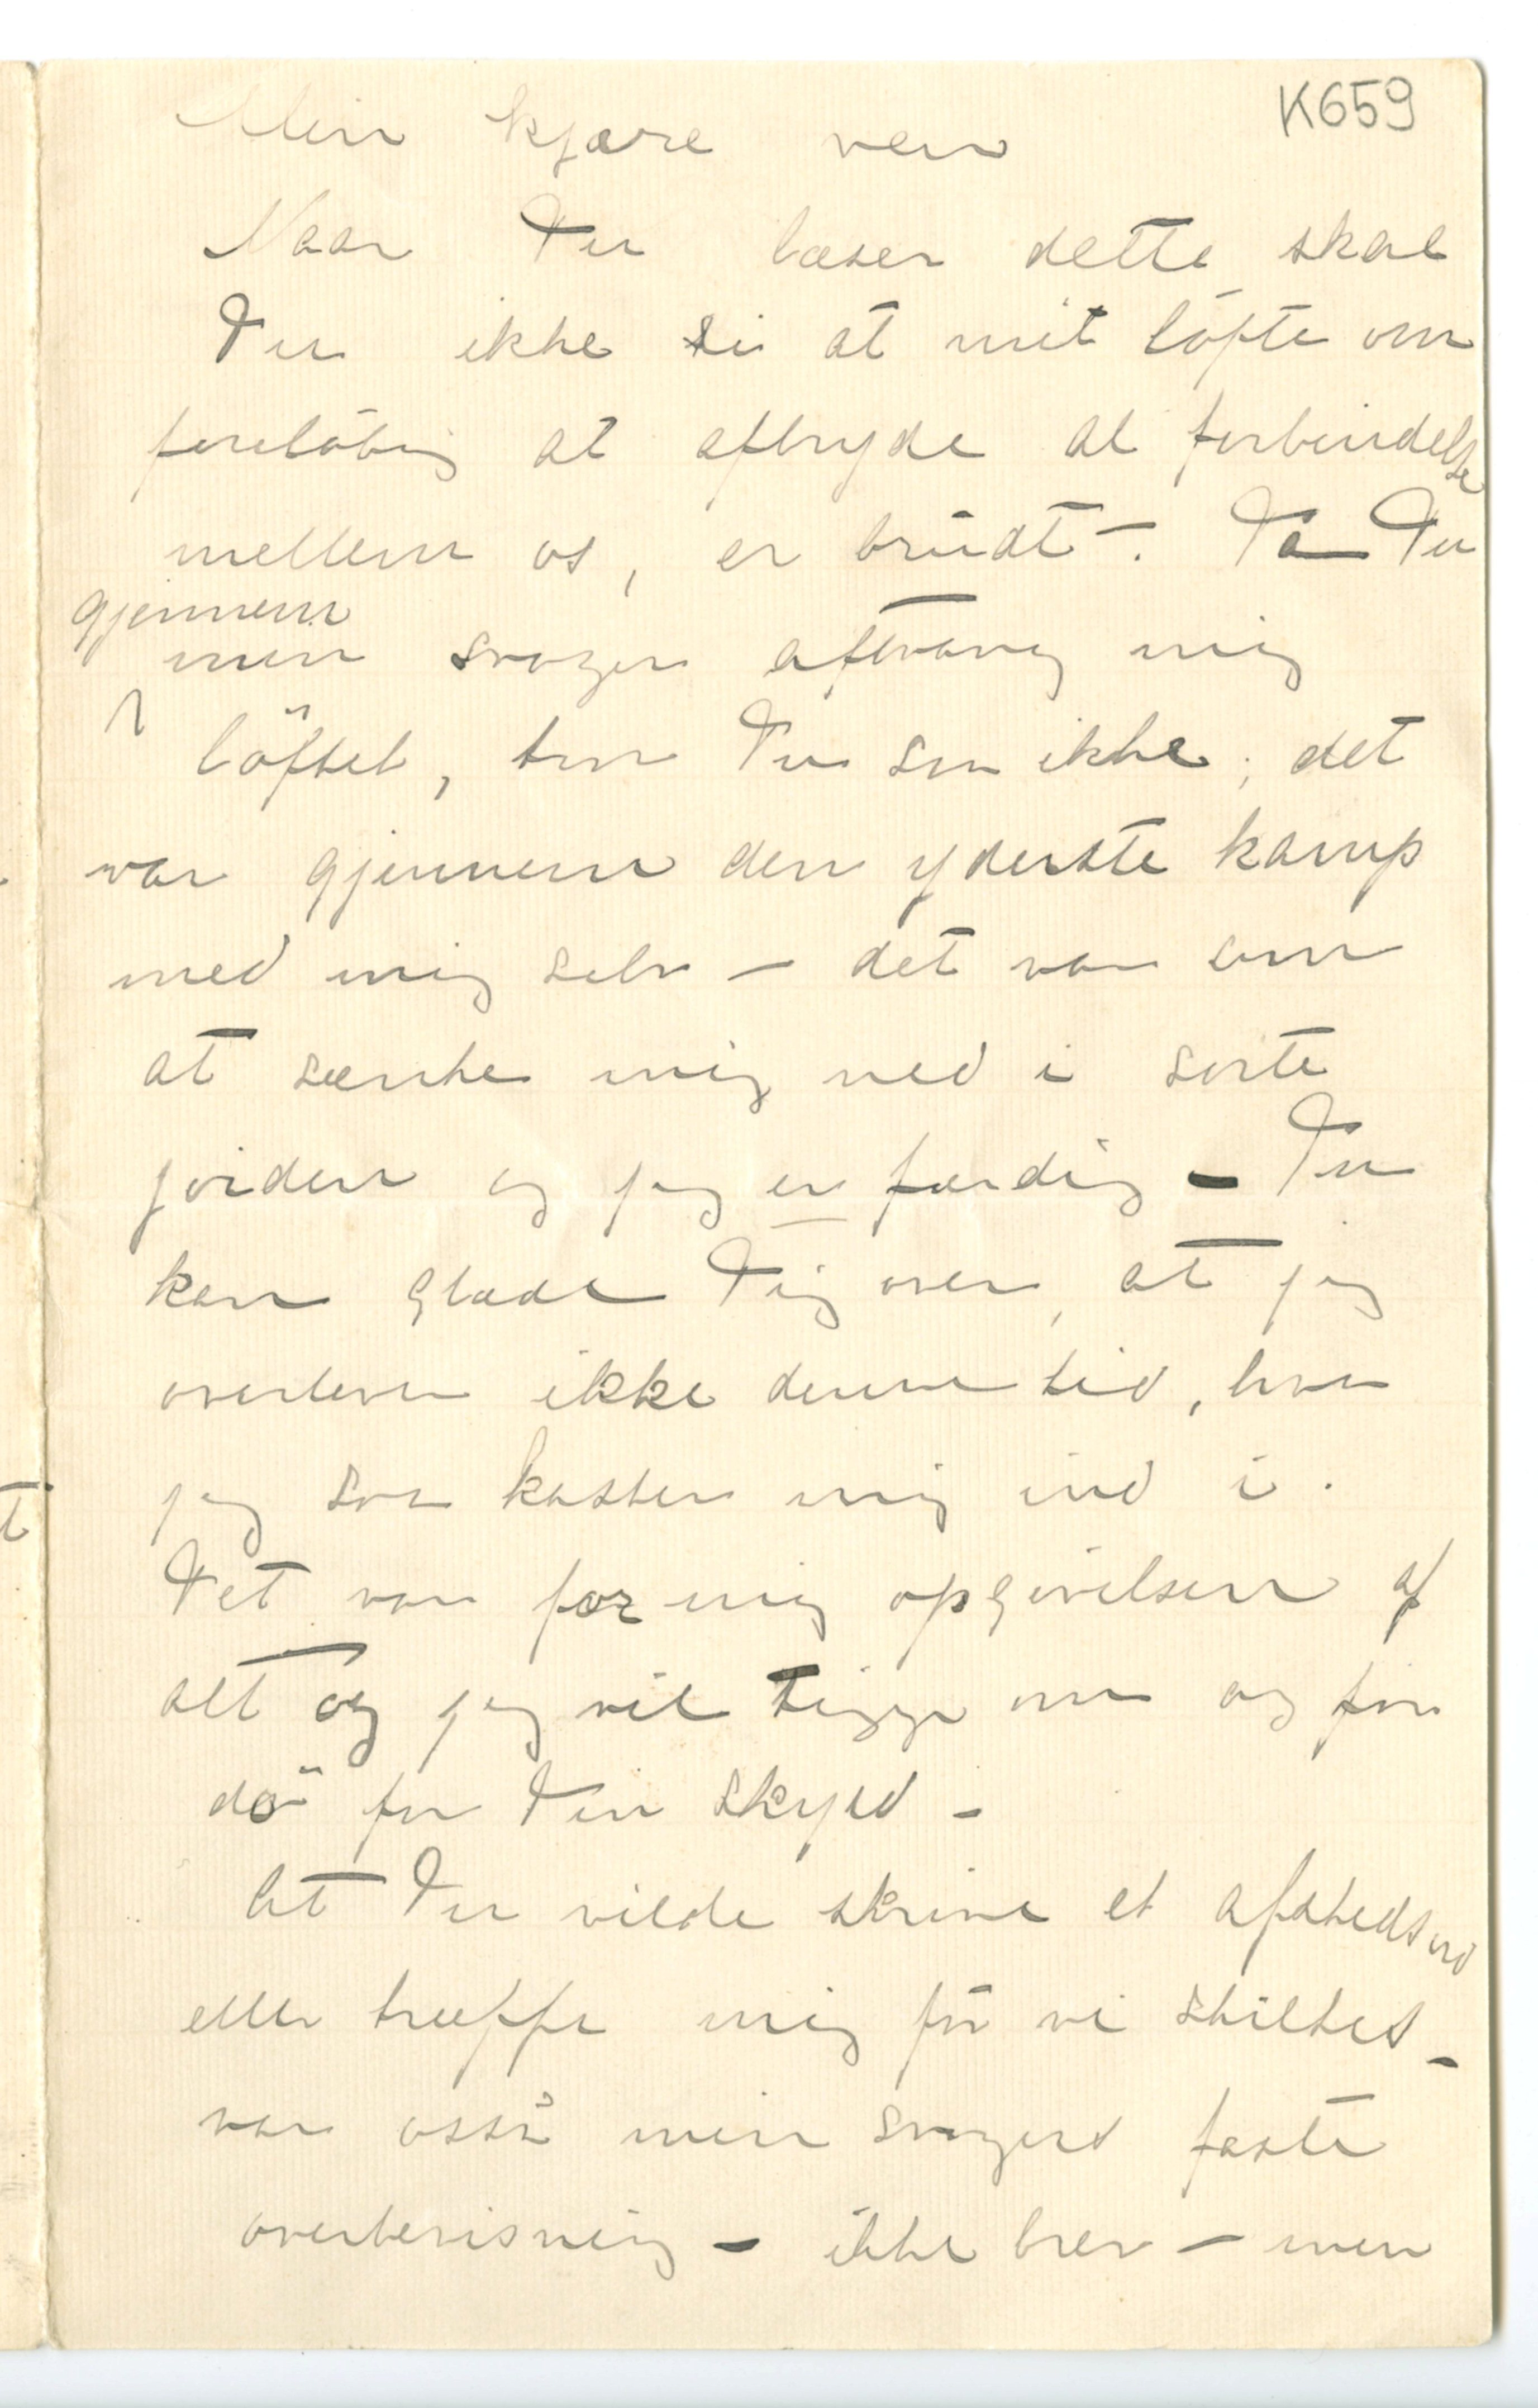 K659
Min kjære ven
Naar Du læser dette skal
Du ikke si at mit löfte om
foreløbig at afbryde al forbindelse
mellem os, er brudt –. Da Du
gjennem
min svoger aftvang mig
löftet, tror Du son ikke; det
var gjennem den yderste kamp
med mig selv – det var som
at sænke mig ned i sorte
jorden og jeg er færdig – Du
kan glæde Dig over, at jeg
overlever ikke denne tid, hvor
jeg kaster mig ind i.
Det var for mig opgivelsen af
alt og jeg vil tigge om og for
dö for Din skyld –
At Du vilde skrive et afskedsord
eller træffe mig för vi skiltes –
var osså min svogers faste
overbevisning – ikke brev – men